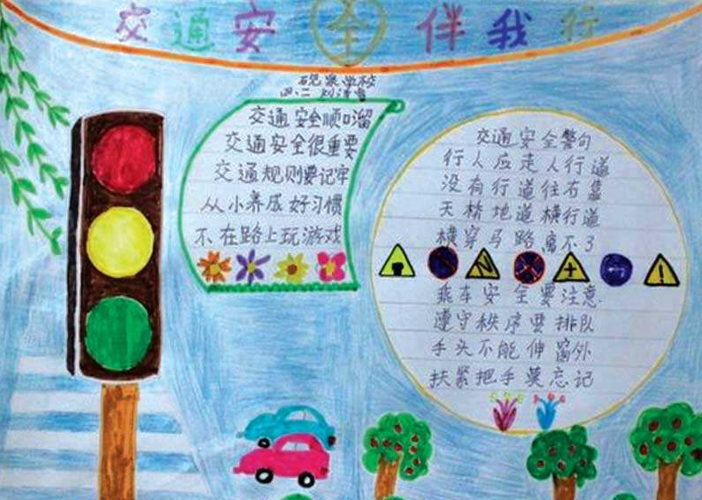 交通安全伴我行
砚泉学校
交通安全顺口溜
交通安全很重要
交通规则要记牢
从小养成好习惯
不在路上玩游戏
交通安全警句
行人应走人行道
没有行道往右靠
天桥地道横行道
横穿马路离不了
乘车安全要注意
遵守秩序要排队
手头不能伸窗外
扶紧把手莫忘记